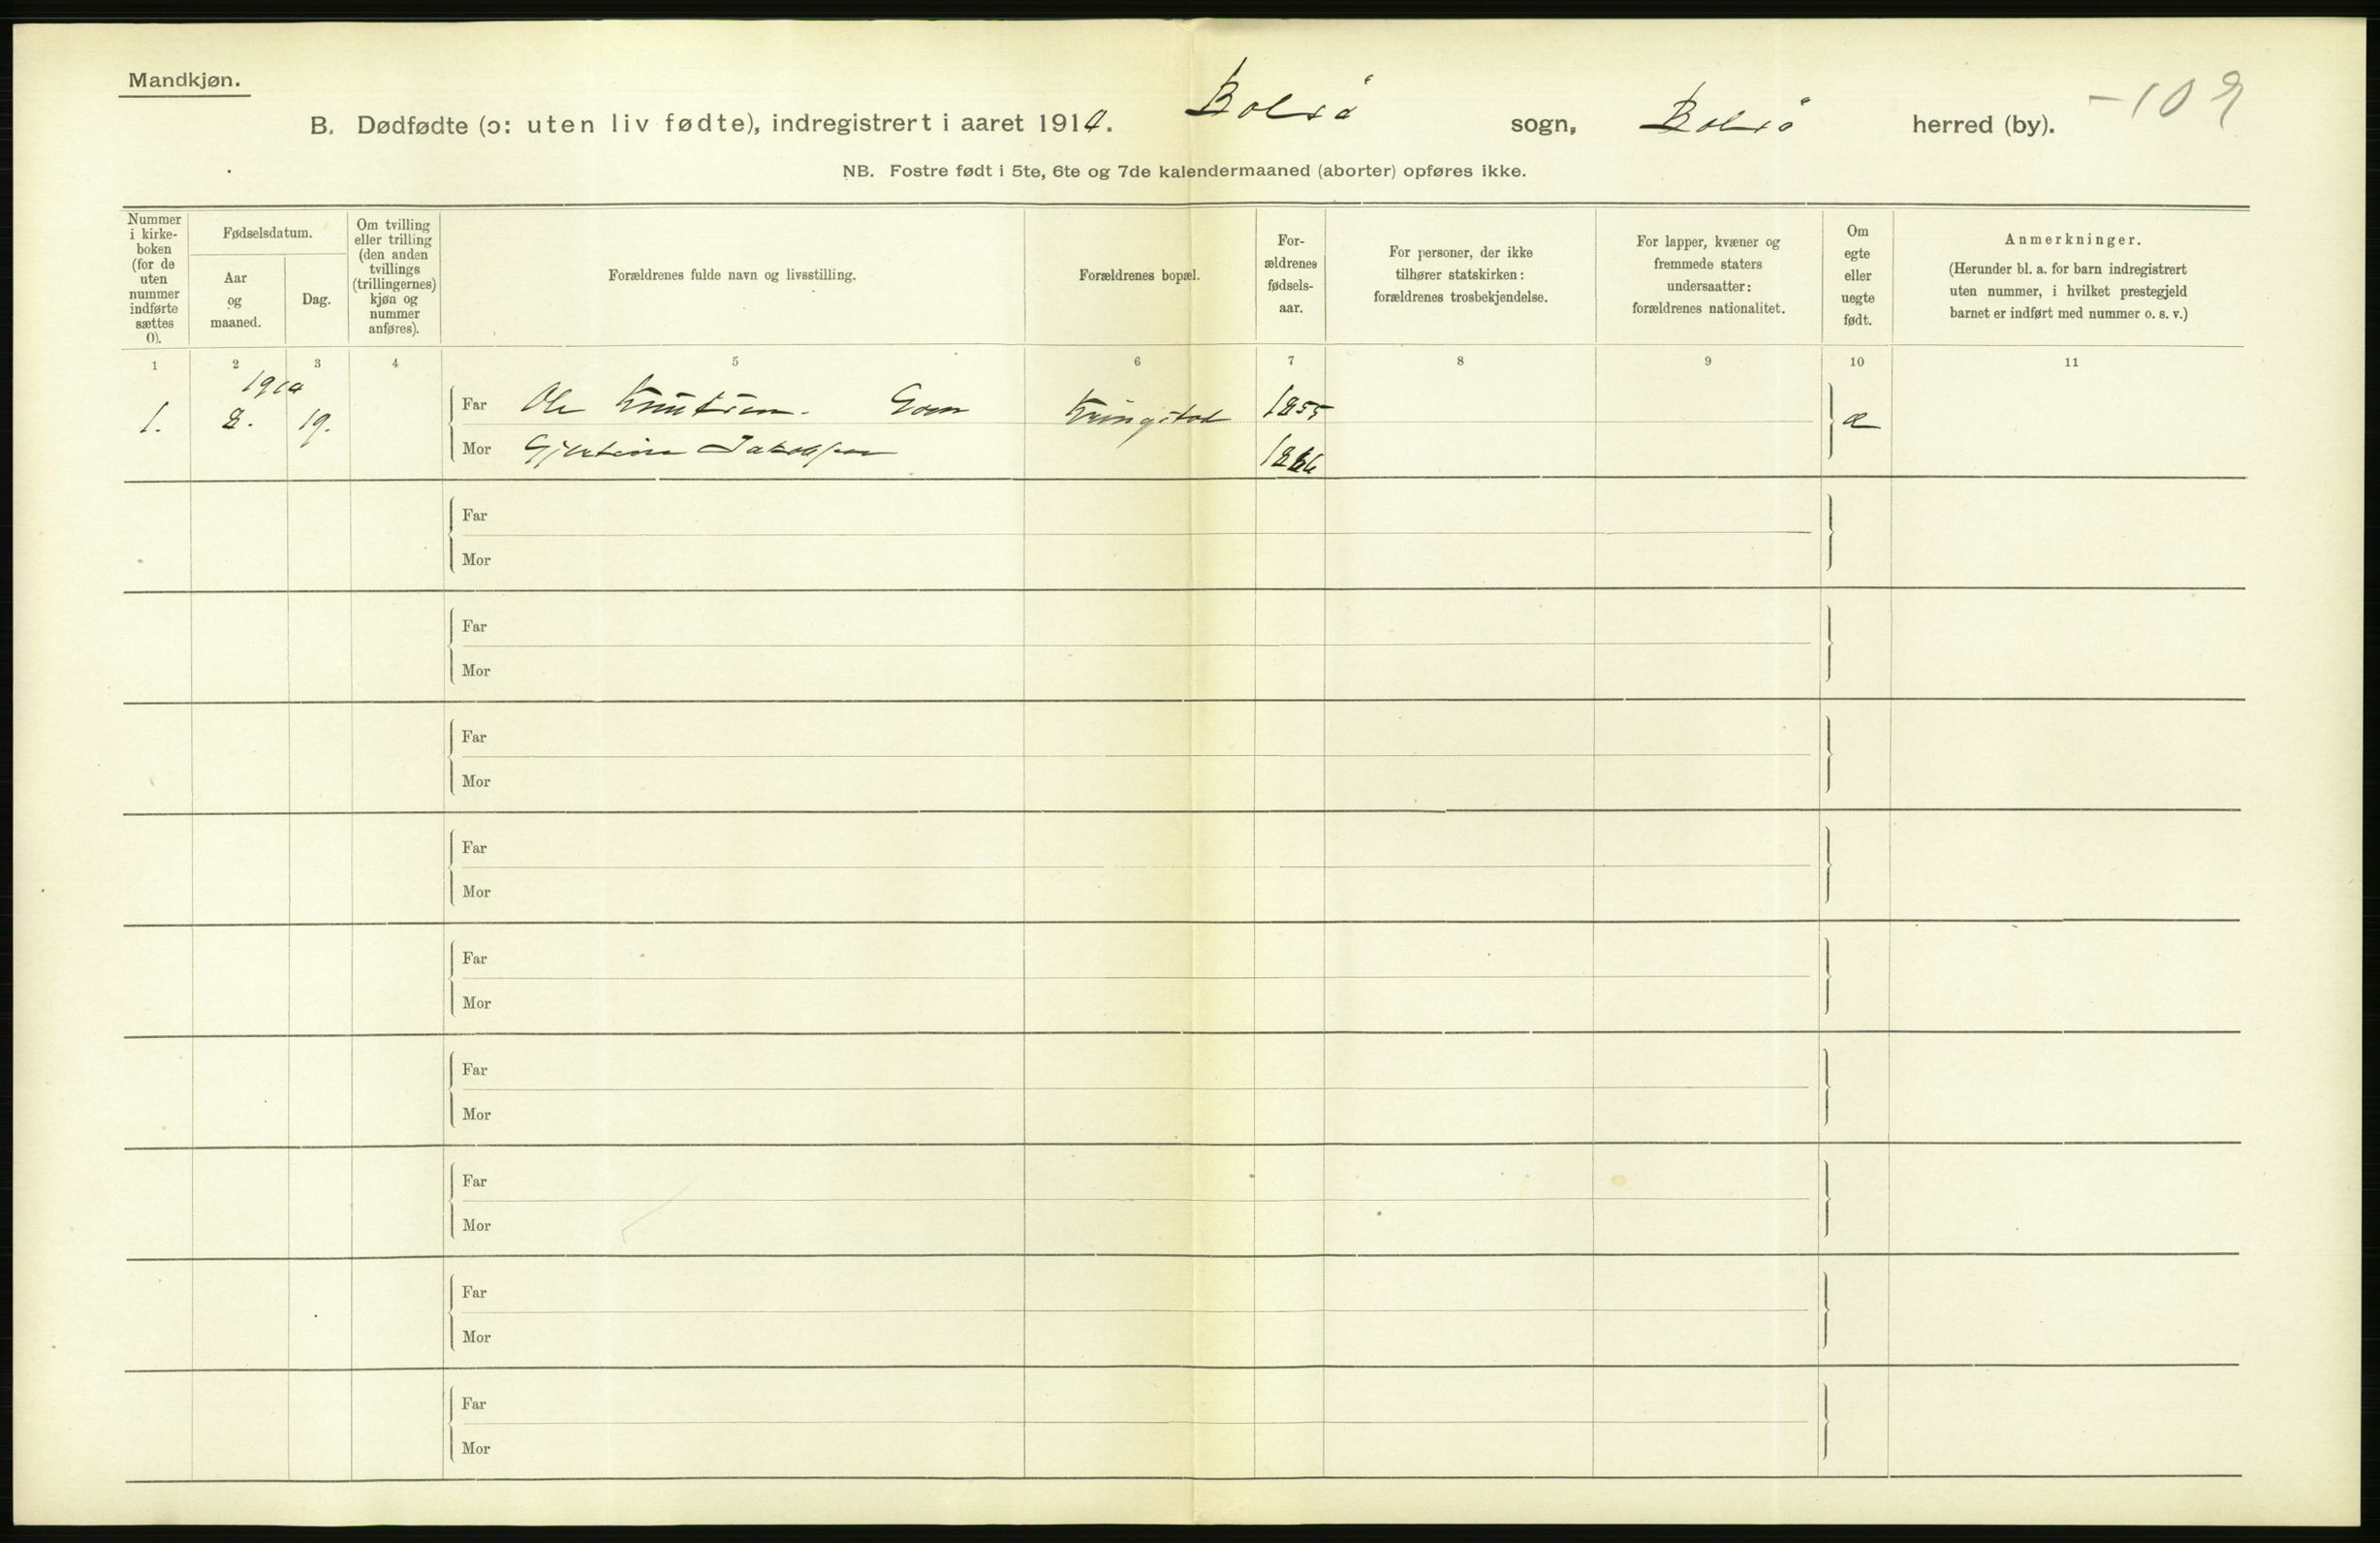 Mandkjøn.
B. Dødfødte (ɔ: uten liv fødte), indregistrert i aaret 1910. Bolsø sogn, Bolsø herred (by). -109
NB. Fostre født i 5te, 6te og 7de kalendermaaned (aborter) opføres ikke.
Nummer
i kirke-
boken
(for de
uten
nummer
indførte
sættes
0).
Fødselsdatum.
Aar
og
maaned.
Dag.
Om tvilling
eller trilling
(den anden
tvillings
(trillingernes)
kjøn og
nummer
anføres).
Forældrenes fulde navn og livsstilling.
Forældrenes bopæl.
For-
ældrenes
fødsels-
aar.
For personer, der ikke
tilhører statskirken:
forældrenes trosbekjendelse.
For lapper, kvæner og
fremmede staters
undersaatter:
forældrenes nationalitet.
Om
egte
eller
uegte
født.
Anmerkninger.
(Herunder bl. a. for barn indregistrert
uten nummer, i hvilket prestegjeld
barnet er indført med nummer o. s. v.)
1 2 3 4 5 6 7 8 9 10 11
1910
1. 8. 19. Far Ole Knutsen. Kringstad 1855 æ
Mor Jakobsen
Far
Mor
Far
Mor
Far
Mor
Far
Mor
Far
Mor
Far
Mor
Far
Mor
Far
Mor
Far
Mor